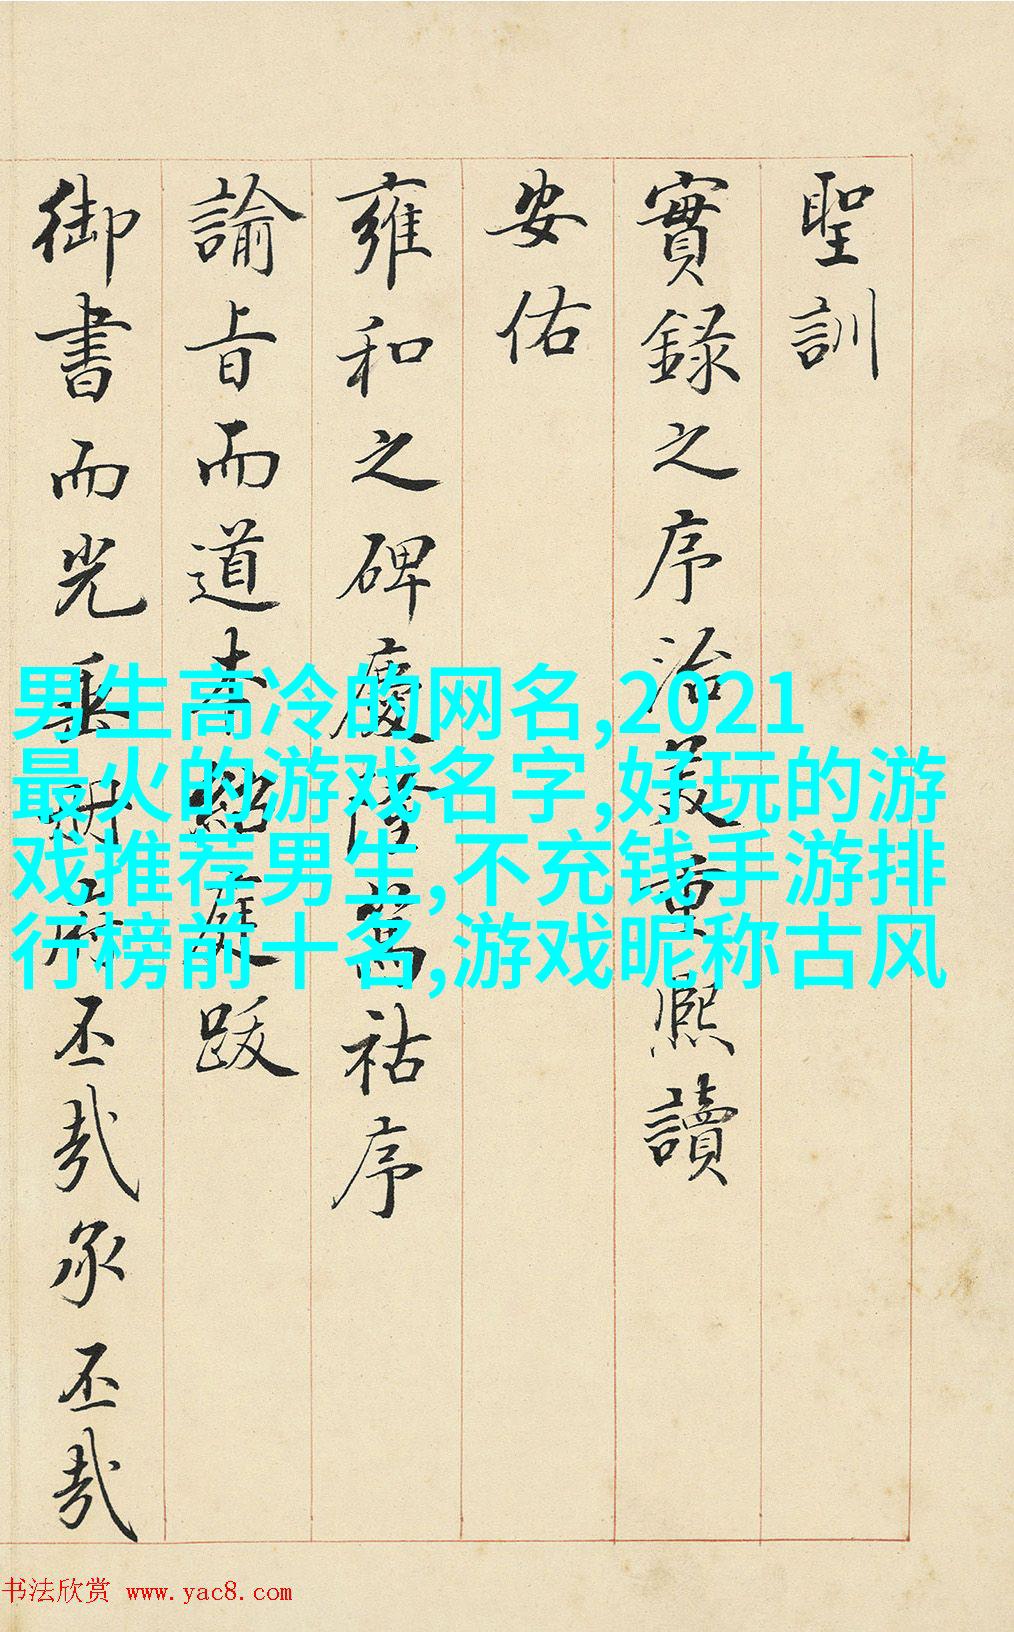 聖訓
實錄之序治美章熙讀
安佑
雍和之碑慶隆祜序
諭旨而道跋
御書而光丕哉承丕哉
男生高冷的网名,2021
最火的游戏名字,好玩的游
戏推荐男生,不充钱手游排
行榜前十名,游戏昵称古风
书法欣赏 www.yac8.com